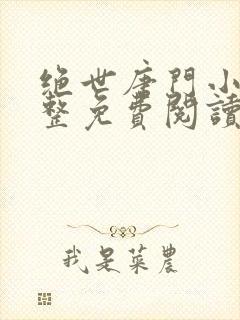 绝世唐門小
整免費閱讀
我是菜農